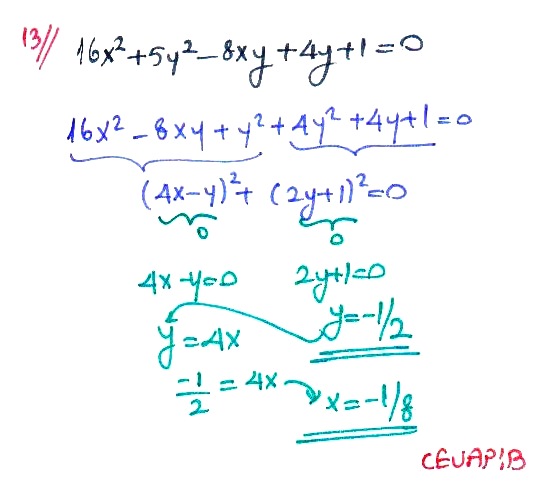 13// 16x²+5y²-8xy+4y+1=0
16x²-8xy+y²+4y²+4y+1=0
(4x-y)²+(2y+1)²=0
0 0
4x-y=0 2y+1=0
y=4x y=-1/2
-1/2=4x x=-1/8
CEVAP:B